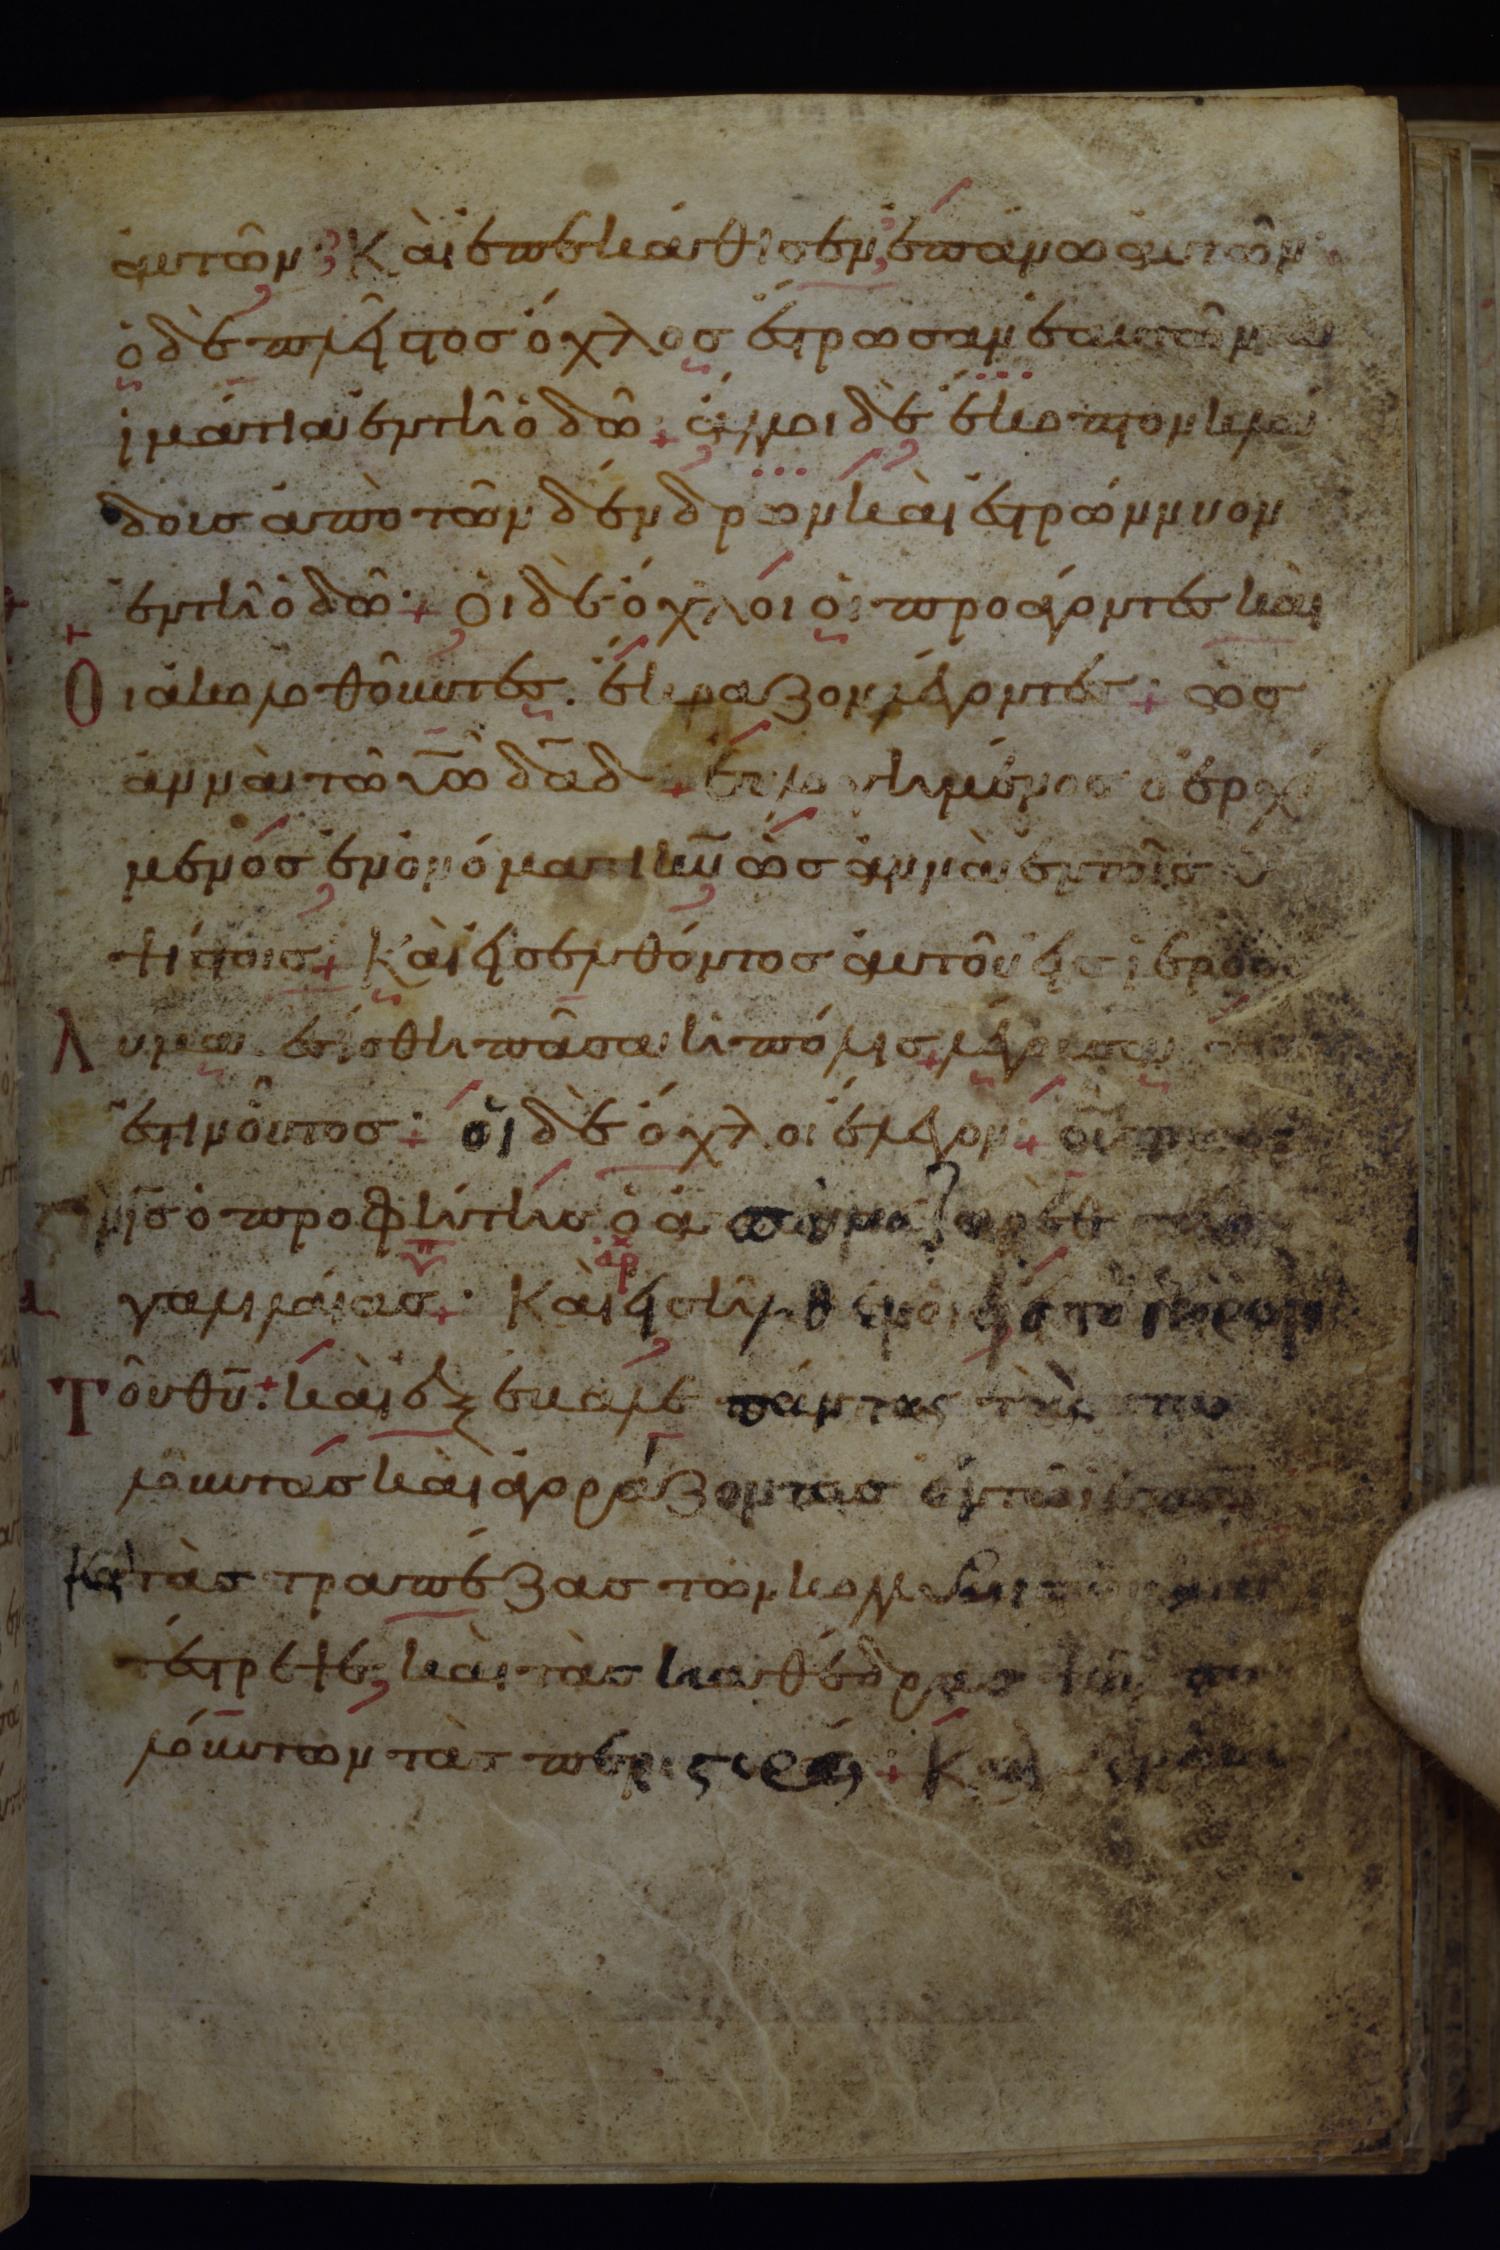 αυτῶν· Καὶ ἐπεκάθισεν ἐπάνω αυτῶν
ὁ δὲ πλεῖστος ὄχλος ἔστρωσαν ἑαυτῶν τὰ
ἱμάτια ἐν τῆ ὁδῶ· ἄλλοι δὲ ἔκοπτον κλά
δους ἀπὸ τῶν δένδρων καὶ ἐστρώννυον
ἐν τῆ ὁδῶ· Οἱ δὲ ὄχλοι οἱ προάγοντες καὶ
οἱ ἀκολοθοῦντες. ἔκραζον λέγοντες· ὡσ
αννὰ τῶ υἱῶ δαδ· εὐλογημένος ὁ ἐρχό
μενος ἐν ὀνόματι κυ ὡσαννὰ ἐν τοῖς ὑ
ψίστοις· Καὶ εἰσελθόντος αὐτοῦ εἰς ἱεροσό
λυμα. ἐσείσθη πᾶσα ἡ πόλις λέγουσα
ἐστιν οὗτος· οἱ δὲ ὄχλοι ἔλεγον· οὗτος
ἐστιν ὁ προφήτης ὁ ἀπὸ ναζαρὲθ τῆς
γαλιλαίας· Καὶ εἰσῆλθεν ὁ ις εἰς τὸ ἱερὸν
τοῦ θυ· καὶ ἐξέβαλε πάντας τοὺς πω
λοῦντας καὶ ἀγοράζοντας ἐν τῶ ἱερῶ
καὶ τὰς τραπέζας τῶν κολλυβιστῶν
έστρεψε, καὶ τὰς καθέδρας τῶν πω
λούντων τὰς περιστεράς· Καὶ